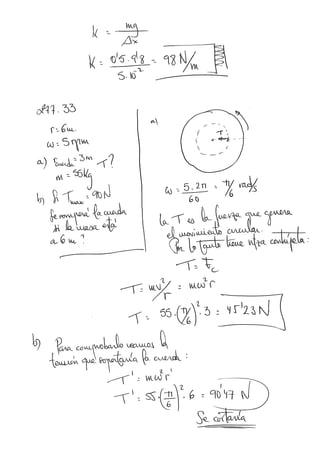 K = mg / Δx
K = 0'5 · 9'8 / 5·10⁻² = 98 N/m
2º47.33
r = 6m
ω = 5 rpm
a) r cuerda = 3m T?
m = 55kg
b) Si T max = 90N
Se romperá la cuerda
si la masa está
a 6 m?
a)
T
ω = 5·2π / 60 = π/6 rad/s
la T es la fuerza que genera
el movimiento circular.
Por lo tanto tiene ntza centrípeta:
T = Fc
T = mv²/r = mω²r
T = 55·(π/6)²·3 = 45'23N
b) Para comprobarlo veamos la
tensión que soportaría la cuerda:
T' = mω²r'
T' = 55·(π/6)²·6 = 90'47 N
Se cortaría